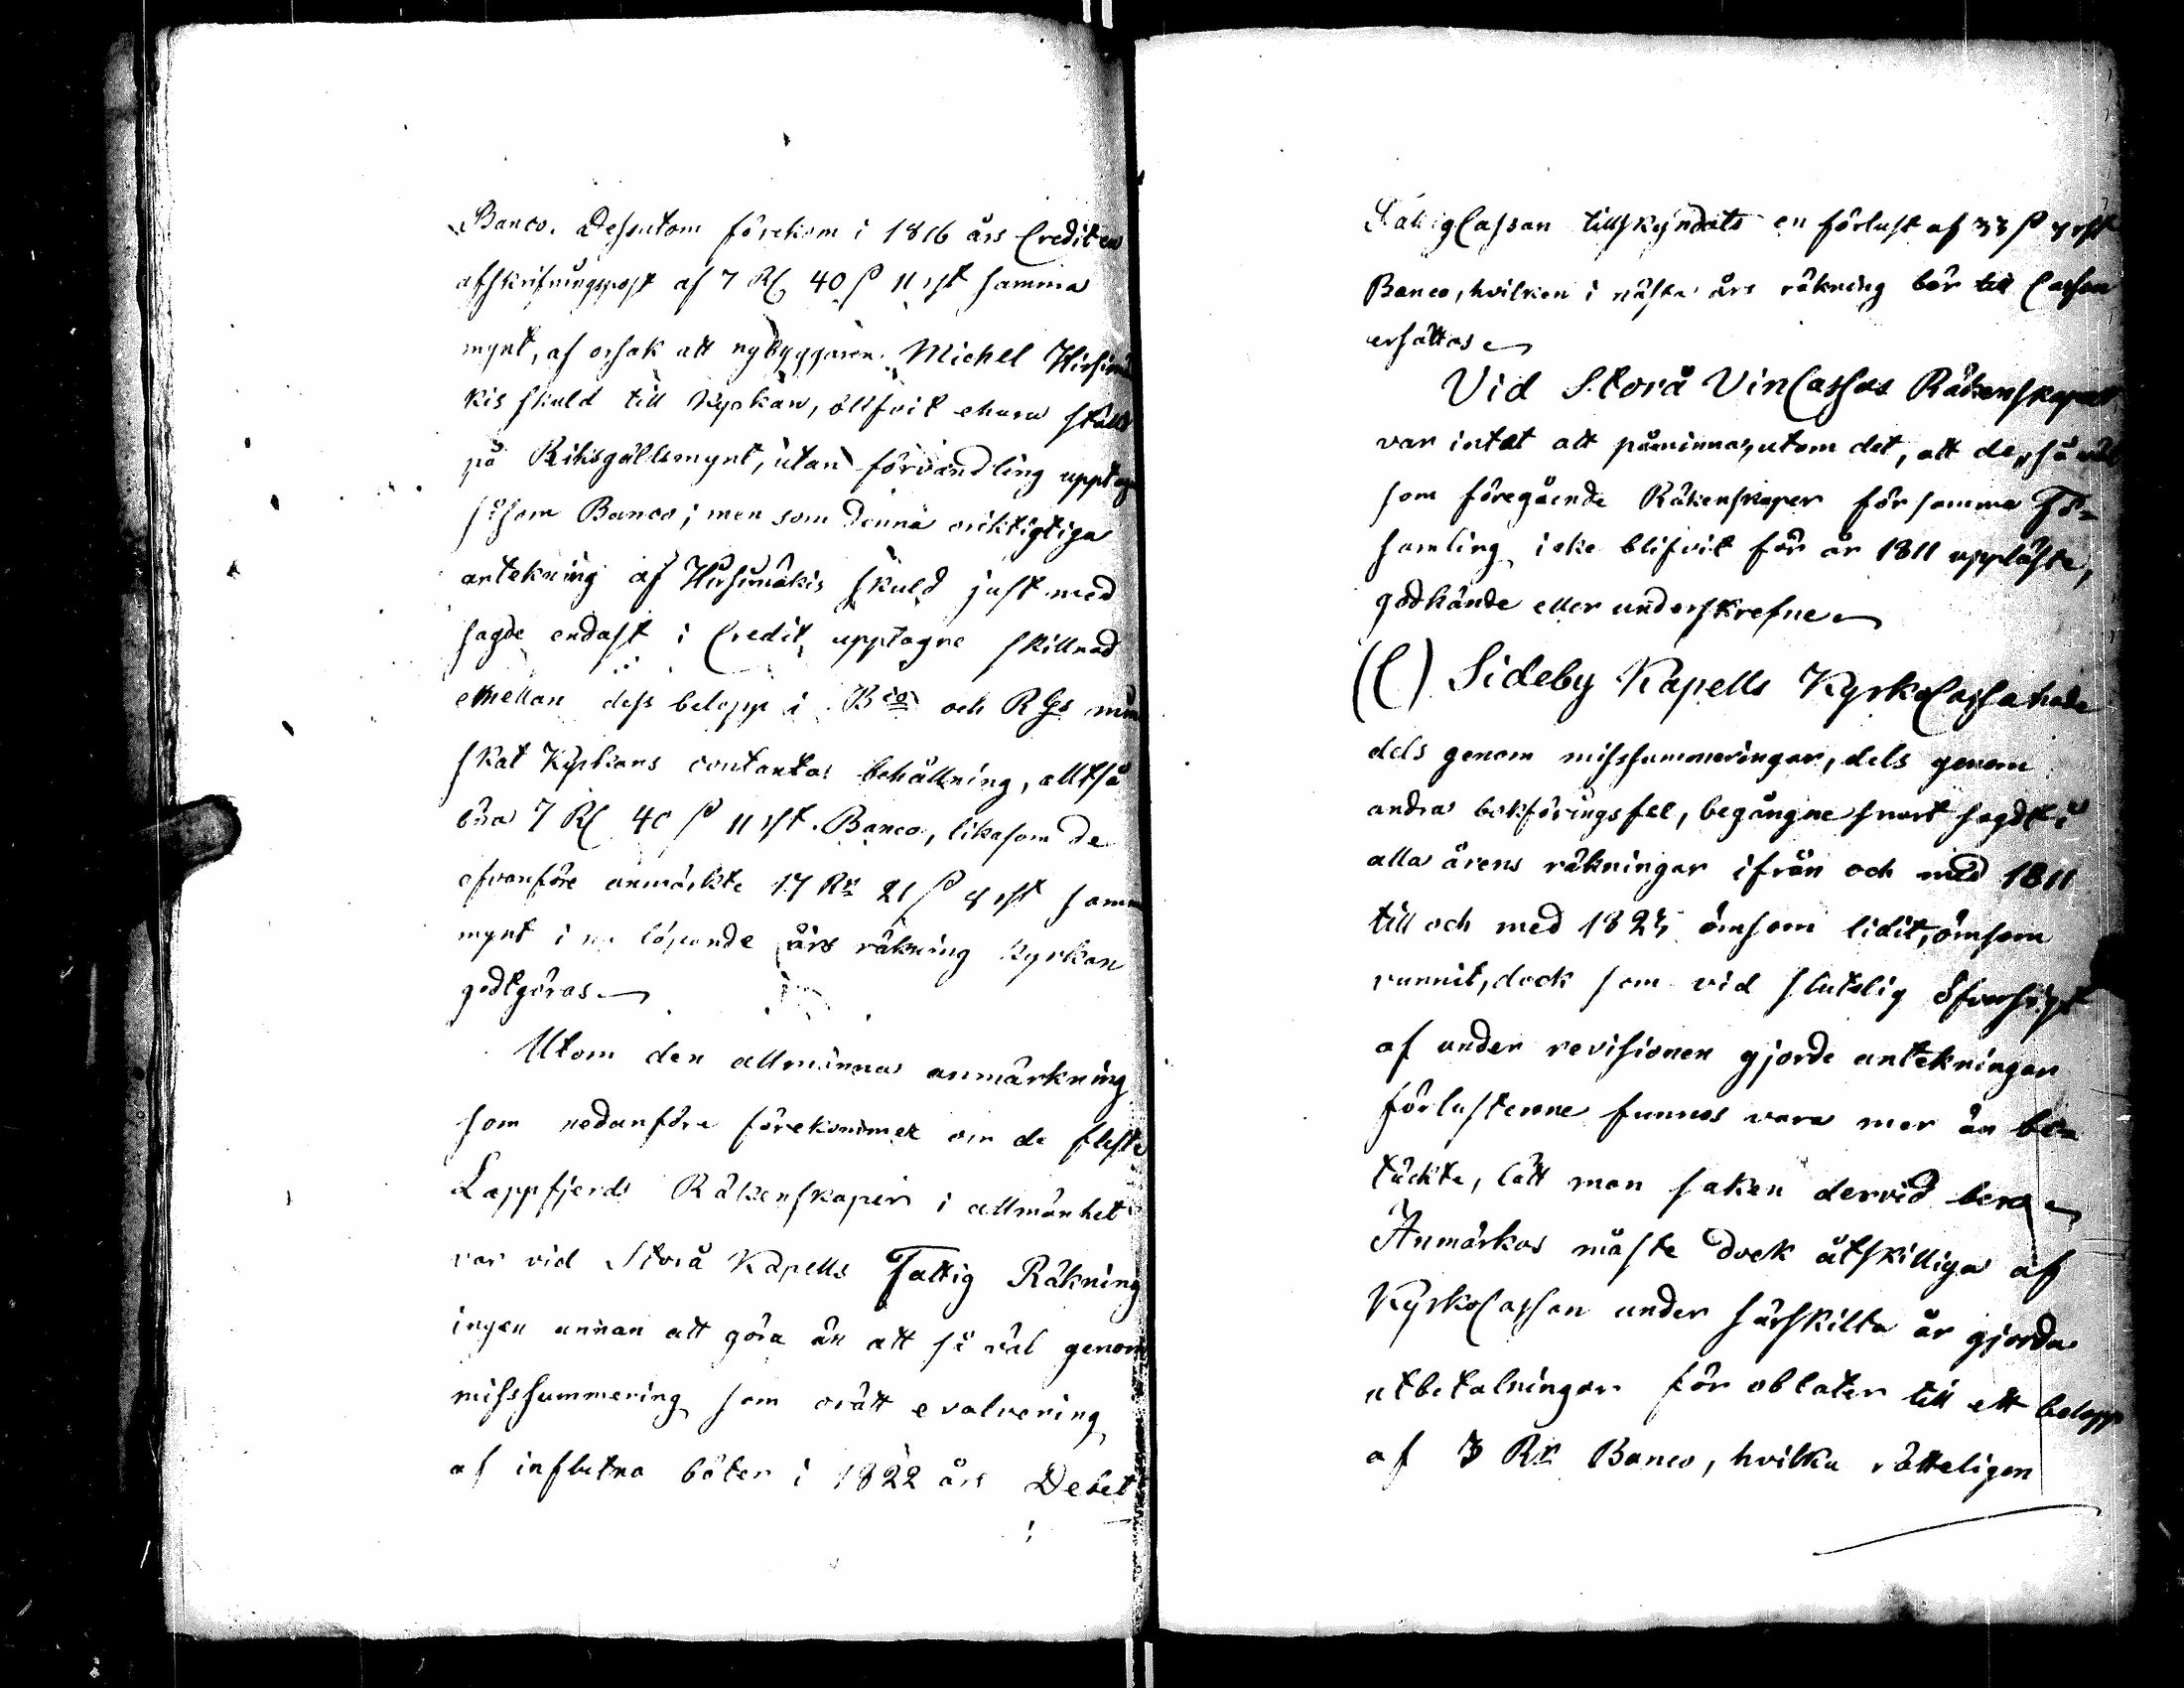 Banco. Dessutom förekom i 1816 års Credit en
afskrifningspost af 7 R 40 ß 11 rst samma
mynt, af orsak att nybyggaren Michel Hirsimä
kis skuld till Kyrkan, blifvit ehuru ställd
på Riksgäldsmynt, utan förvandling upptagen
såsom Banco; men som denna oriktigtiga
antekning af Hirsimäkis skuld just med
sagde endast i Credit upptagne skillnad
emellan dess belopp i Bco och RGs min
skat Kyrkans contanta behållning, alltså
böra 7 R 40 ß 11 rst. Banco, likasom de
ofvanföre anmärkte 17 Rr 21 ß 8 rst samma
mynt i nu löpande års räkning Kyrkan
godtgöras.
Utom den allmänna anmärkning
som nedanföre förekommer om de fleste
Lappfjerds Räkenskaper i allmänhet
var vid Storå Kapells Fattig Räkning
ingen annan att göra än att så väl genom
misssummering som orätt evalvering
af influtna böter i 1822 års Debet
FattigCassan tillskyndats en förlust af 33 ß rst
Banco, hvilken i nästa års räkning bör till Cassan
ersättas
Vid Storå VinCassas Räkenskaper
var intet att påminna, utom det, att de, så väl
som föregående Räkenskaper för samma För-
samling icke blifvit för år 1811 uppläste,
godkände eller underskrefne
(C) Sideby Kapells KyrkoCassa hade
dels genom misssummeringar, dels genom
andra bokföringsfel, begångne snart sagdt i
alla årens räkningar ifrån och med 1811
till och med 1825 ömsom lidit, ömsom
vunnit, dock som vid slutelig öfversigt
af under revisionen gjorde antekningar
förlusterne funnos vara mer än be-
täckte, lätt man saken dervid bero
Anmärkas måste dock åtskilliga af
KyrkoCassan under särskilta år gjorda
utbetalningar för oblater till ett belopp
af 3 Rr Banco, hvilka rätteligen